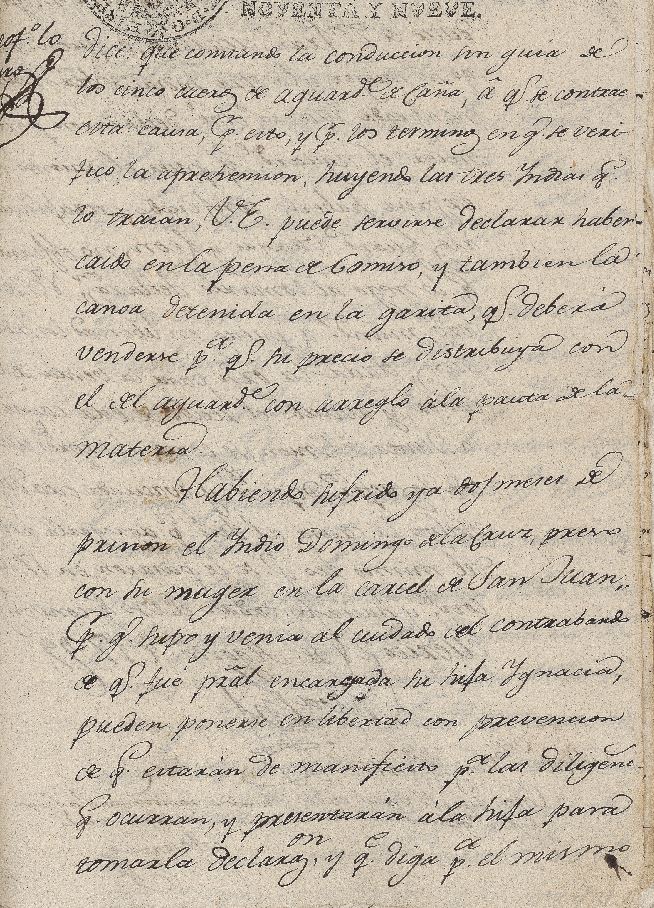 NOVENTA Y NUEVE.
Dice: que constando la conduccion sin guia de
los cinco cueros de aguard.e de Caña, à q.e se contrae
esta causa, p.r esto, y p.r los terminos en q.e se veri
ficó la aprehension, huyendo las tres Indias q.e
lo traían, V.E. puede servirse declarar haber
caido en la pena de Comiso, y tambien la
canoa detenida en la garita, q.e deberá
venderse p.a q.e su precio se distribuya con
el del aguard.e con arreglo à la pauta de la
materia.
Habiendo sufrido ya dos meses de
prision el Indio Domingo de la Cruz, preso
con su muger en la carcel de San Juan,
p.r q.e supo y venia al cuidado del contrabando
de q.e fue pral encargada su hija Ygnacia,
pueden ponerse en libertad con prevencion
de q.e estarán de manifiesto p.a las diligenc.
q.e ocurran, y presentarán à la hija para
tomarla declaraon, y q.e diga p.a el mismo